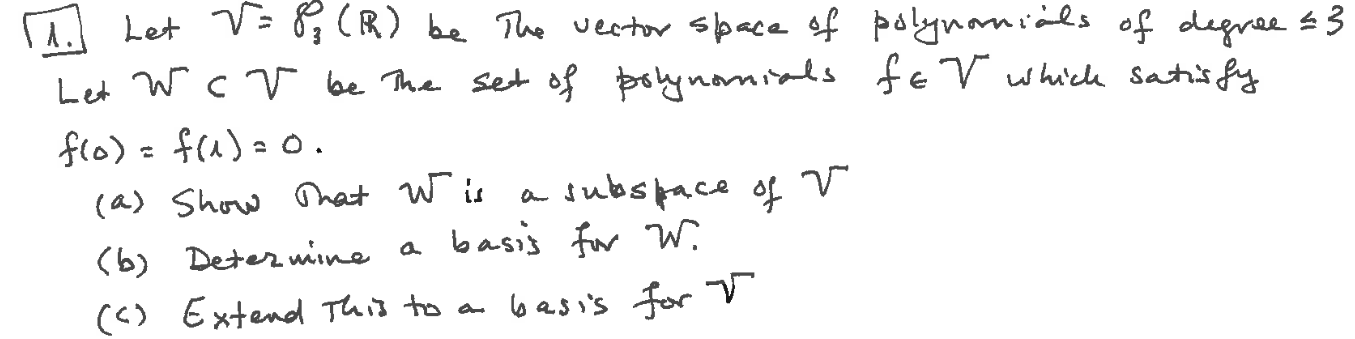 1. Let V = P₃(ℝ) be The vector space of polynomials of degree ≤ 3
Let W ⊂ V be The set of polynomials f ∈ V which satisfy
f(0) = f(1) = 0.
(a) Show That W is a subspace of V
(b) Determine a basis for W.
(c) Extend This to a basis for V